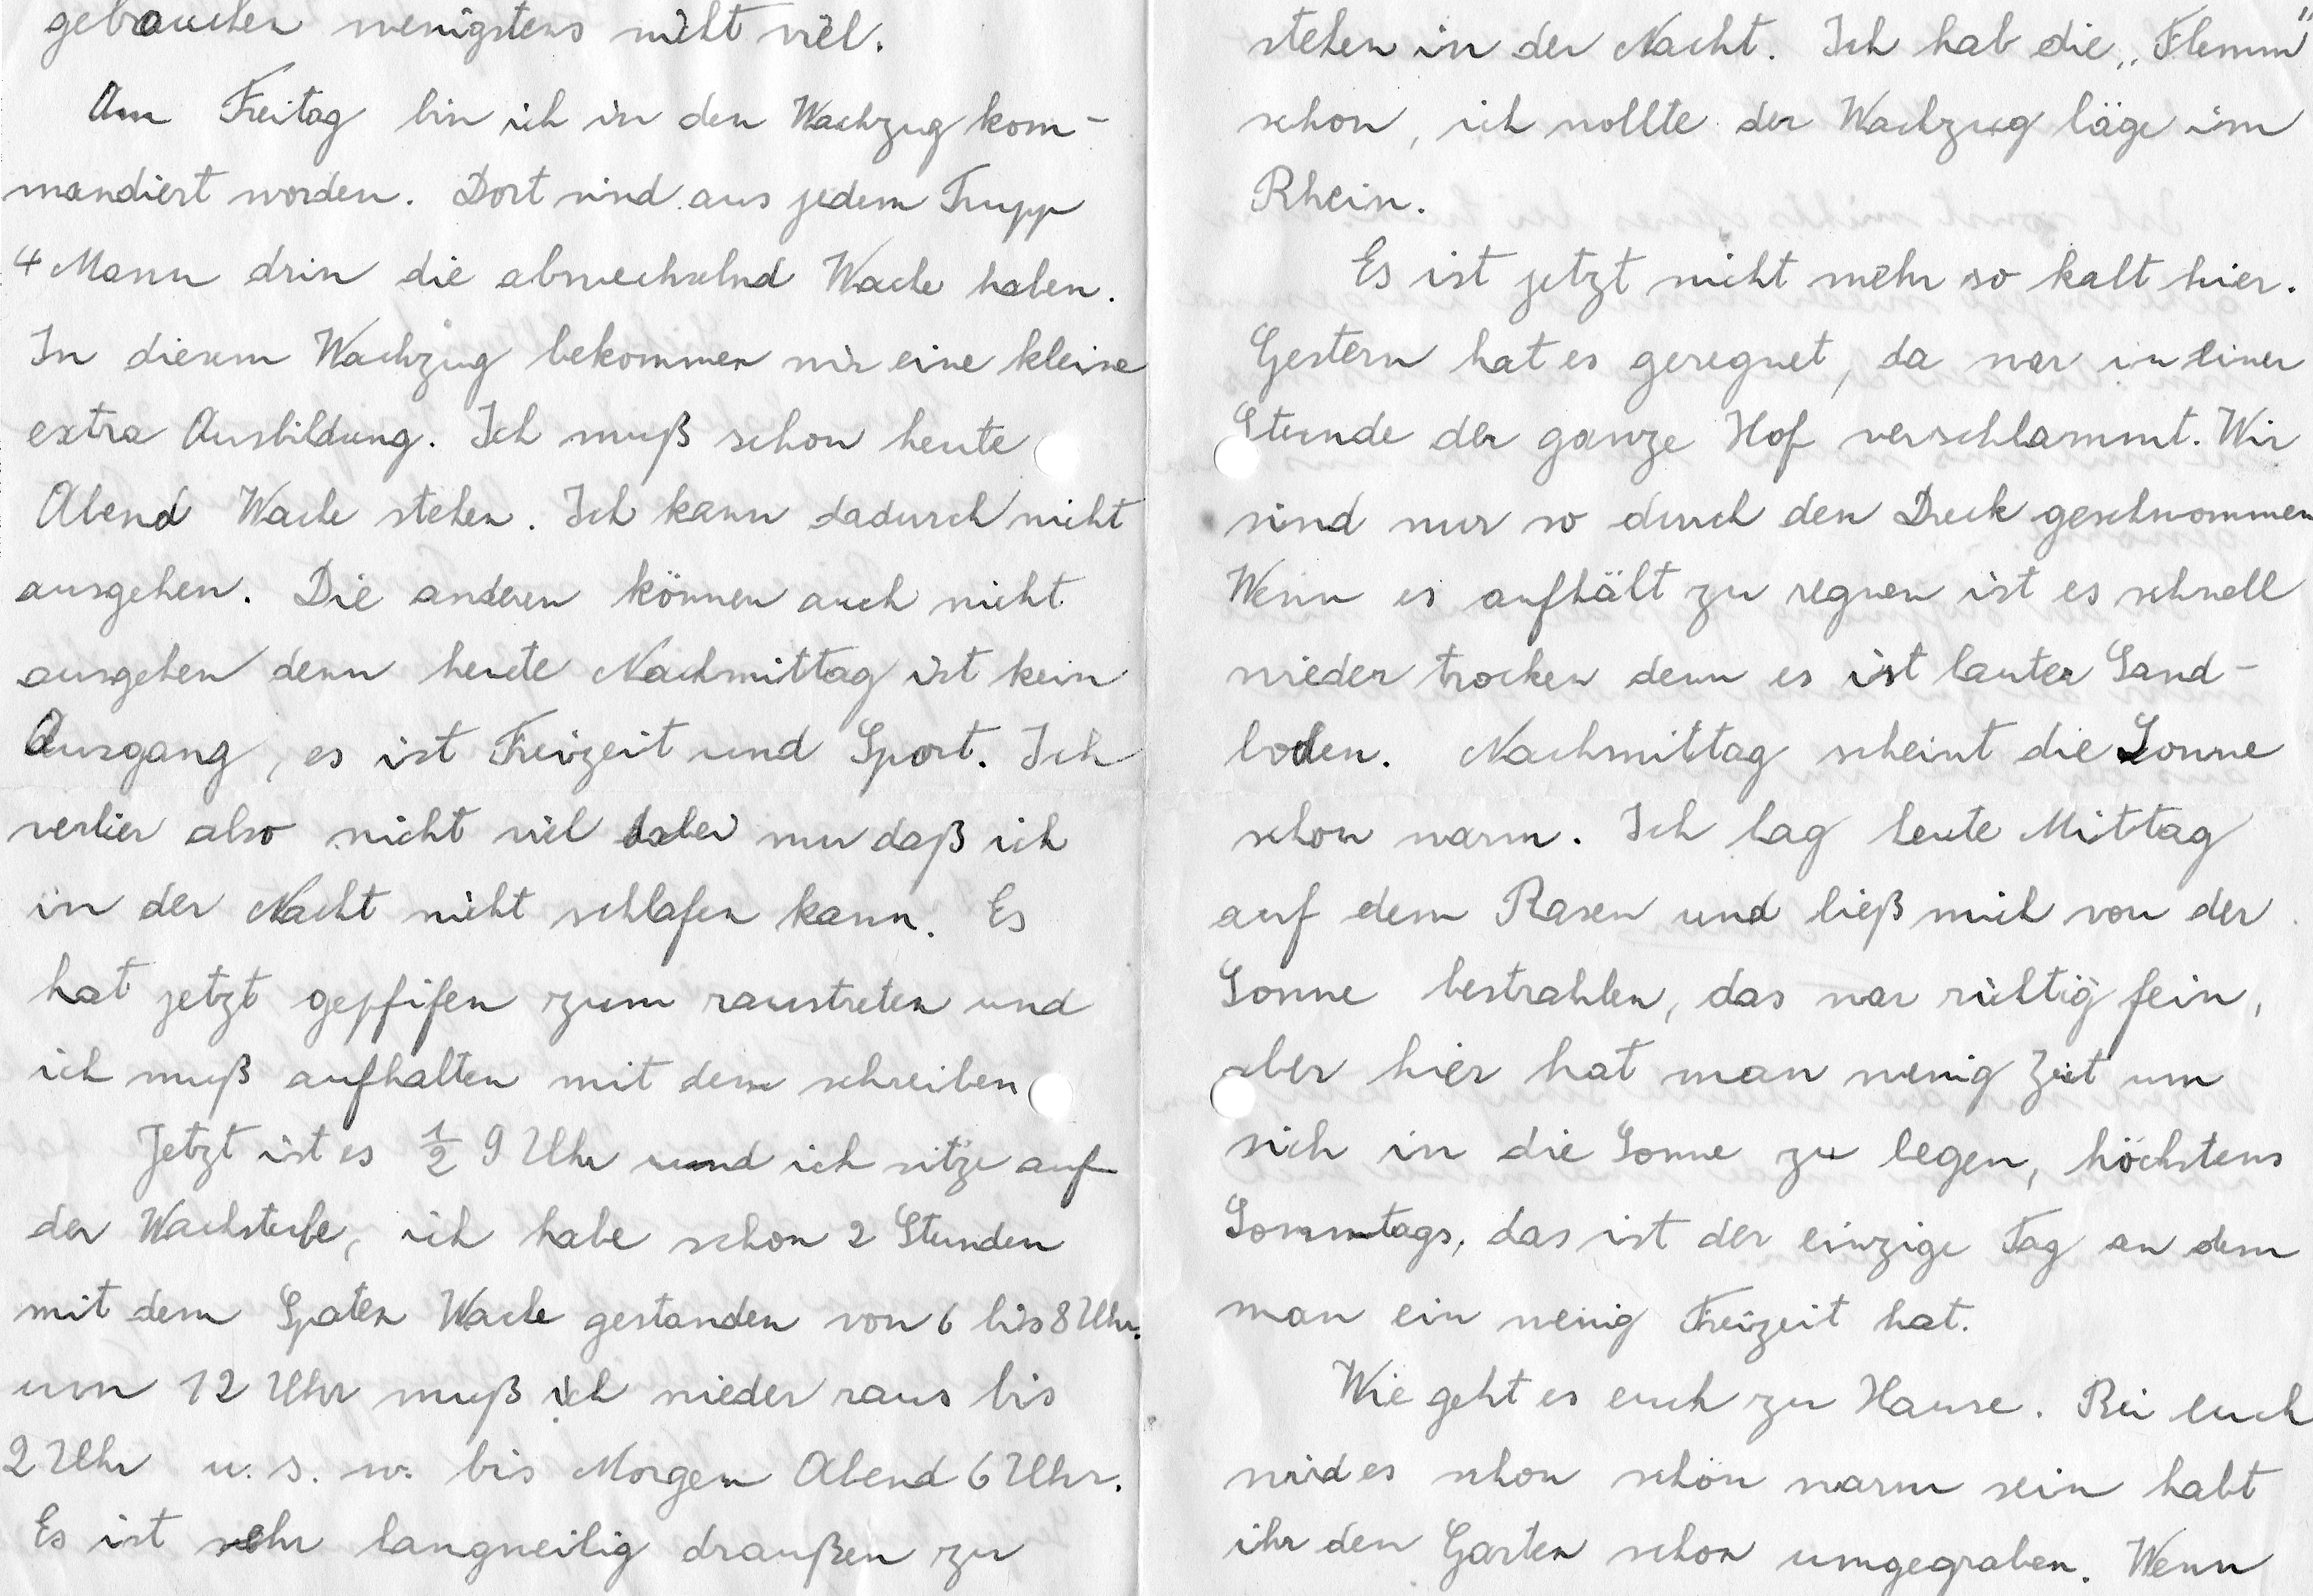 gebrauchen wenigstens nicht viel.
Am Freitag bin ich in den Wachzug kom-
mandiert worden. Dort sind aus jedem Trupp
4 Mann drin die abwechselnd Wache haben.
In diesem Wachzug bekommen wir eine kleine
extra Ausbildung. Ich muß schon heute
Abend Wache stehen. Ich kann dadurch nicht
ausgehen. Die anderen können auch nicht
ausgehen denn heute Nachmittag ist kein
Ausgang, es ist Freizeit und Sport. Ich
verlier also nicht viel dabei nur daß ich
in der Nacht nicht schlafen kann. Es
hat jetzt gepfifen zum raustreten und
ich muß aufhalten mit dem schreiben
Jetzt ist es ½ 9 Uhr und ich sitze auf
der Wachstube, ich habe schon 2 Stunden
mit dem Spaten Wache gestanden von 6 bis 8 Uhr.
um 12 Uhr muß ich wieder raus bis
2 Uhr u. s. w. bis Morgen Abend 6 Uhr.
Es ist sehr langweilig draußen zu
stehen in der Nacht. Ich hab die „Flemm"
schon, ich wollte der Wachzug läge im
Rhein.
Es ist jetzt nicht mehr so kalt hier.
Gestern hat es geregnet, da war in einer
Stunde der ganze Hof verschlammt. Wir
sind nur so durch den Dreck geschwommen
Wenn es aufhält zu regnen ist es schnell
wieder trocken denn es ist lauter Sand-
boden. Nachmittag scheint die Sonne
schon warm. Ich lag heute Mittag
auf dem Rasen und ließ mich von der
Sonne bestrahlen, das war richtig fein,
aber hier hat man wenig Zeit um
sich in die Sonne zu legen, höchstens
Sonntags, das ist der einzige Tag an dem
man ein wenig Freizeit hat.
Wie geht es euch zu Hause. Bei euch
wird es schon schön warm sein habt
ihr den Garten schon umgegraben. Wenn